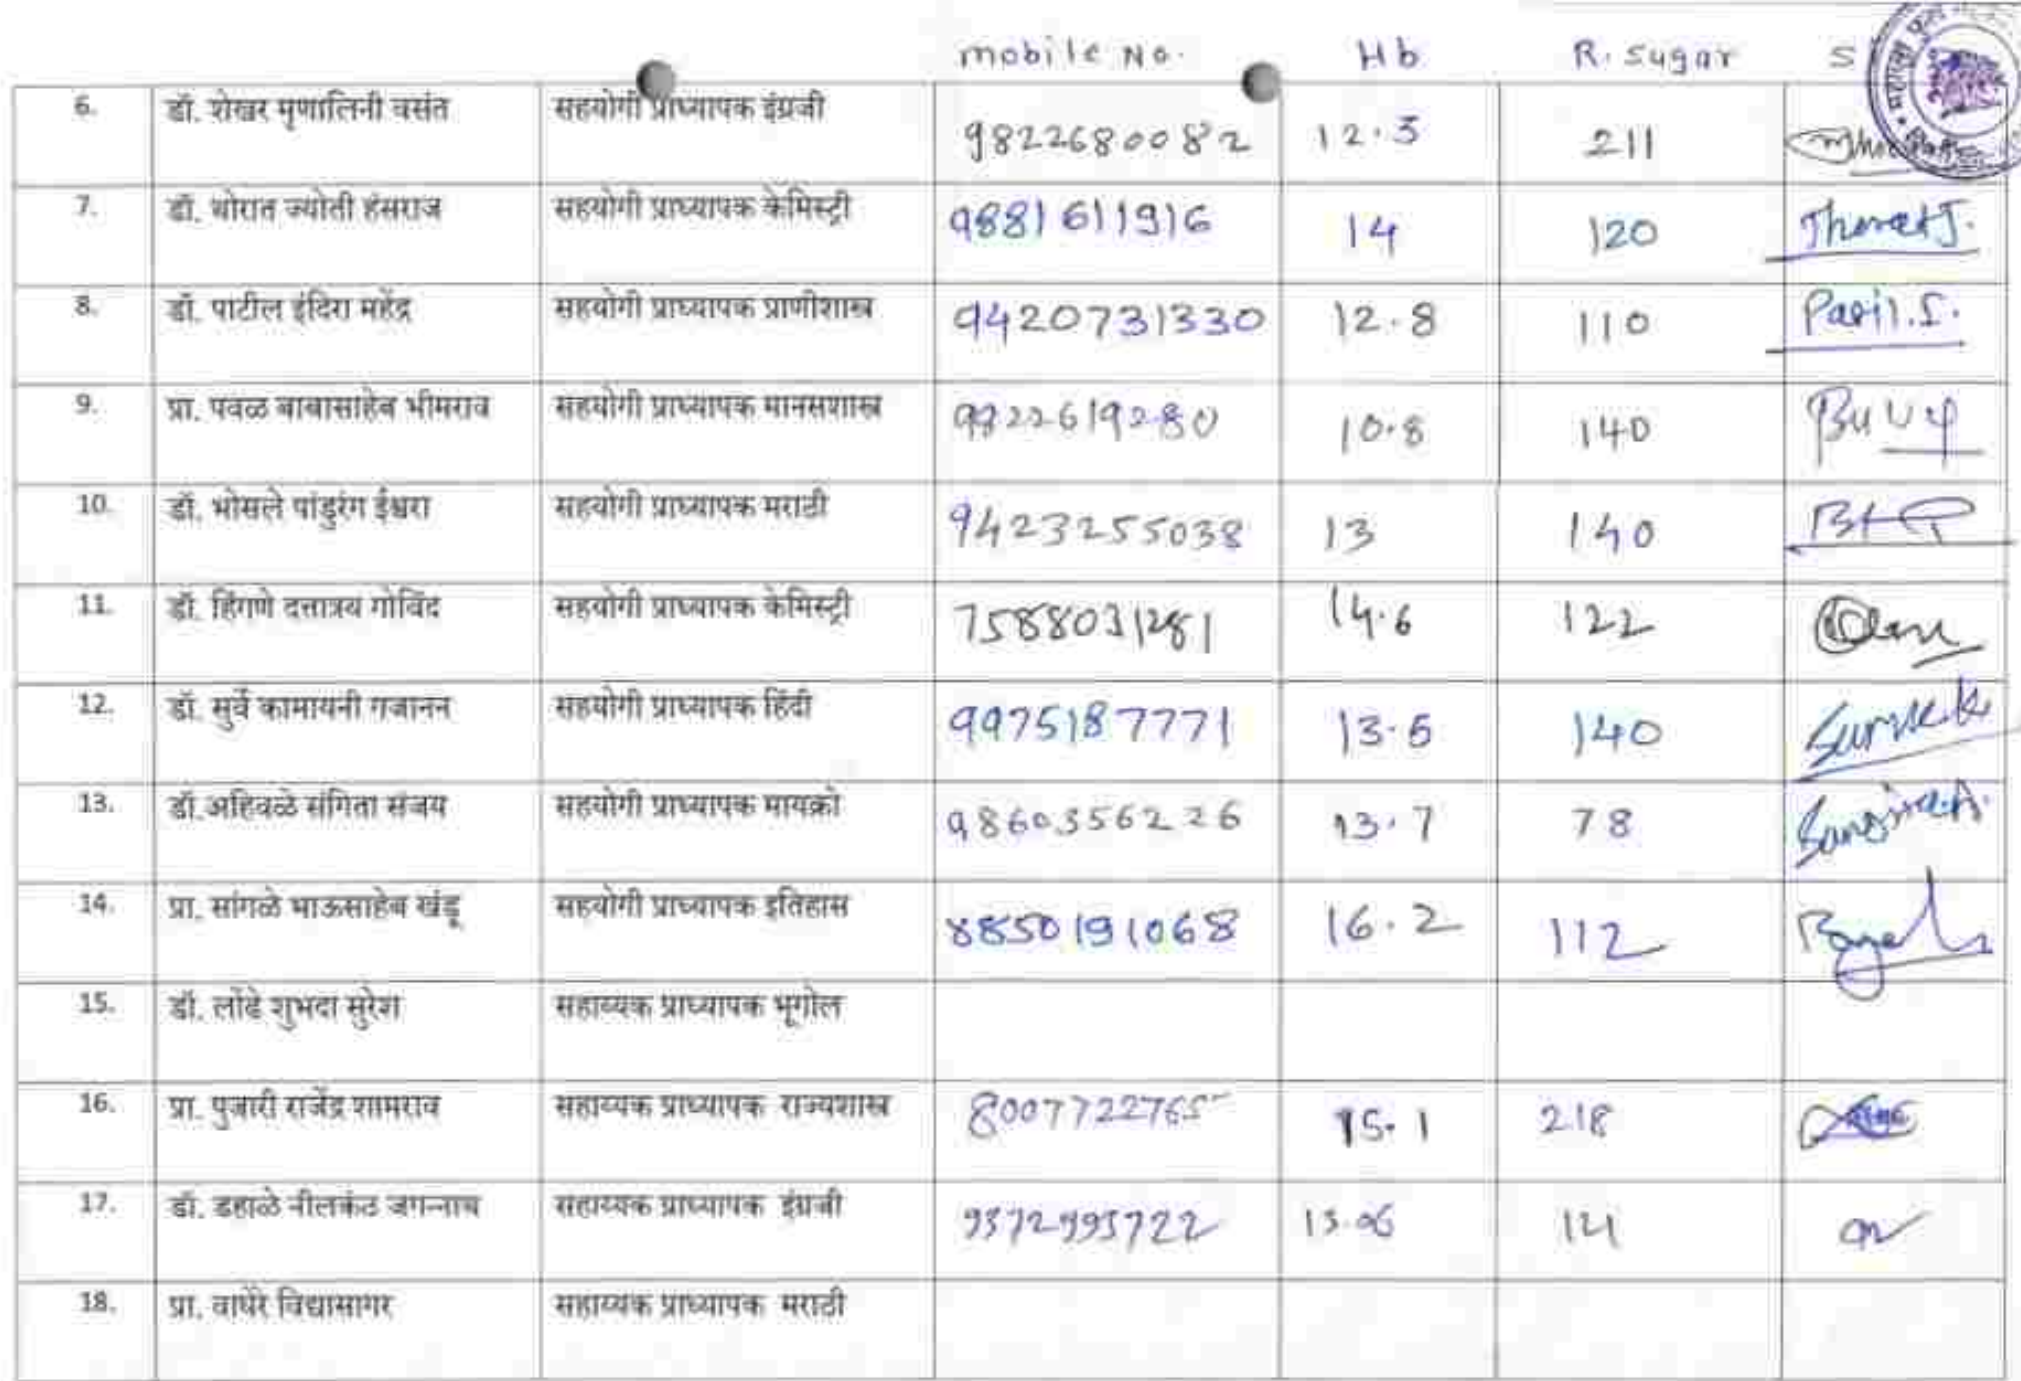 mobile No. Hb R. Sugar S
6. डॉ. शेखर मृणालिनी वसंत सहयोगी प्राध्यापक इंग्रजी 9822680082 12.3 211
7. डॉ. थोरात ज्योती हंसराज सहयोगी प्राध्यापक केमिस्ट्री 9881611916 14 120 Thorat J.
8. डॉ. पाटील इंदिरा महेंद्र सहयोगी प्राध्यापक प्राणीशास्त्र 9420731330 12.8 110
9. प्रा. पवळ बाबासाहेब भीमराव सहयोगी प्राध्यापक मानसशास्त्र 10.8 140
10. डॉ. भोसले पांडुरंग ईश्वरा सहयोगी प्राध्यापक मराठी 9423255038 13 140
11. डॉ. हिंगणे दत्तात्रय गोविंद सहयोगी प्राध्यापक केमिस्ट्री 7588031281 14.6 122
12. डॉ. सुर्वे कामायनी गजानन सहयोगी प्राध्यापक हिंदी 9975187771 13.5 140
13. डॉ.अहिवळे संगिता संजय सहयोगी प्राध्यापक मायक्रो 9860356226 13.7 78
14. प्रा. सांगळे भाऊसाहेब खंडू सहयोगी प्राध्यापक इतिहास 8850191068 16.2 112
15. डॉ. लोंढे शुभदा सुरेश सहाय्यक प्राध्यापक भूगोल
16. प्रा. पुजारी राजेंद्र शामराव सहाय्यक प्राध्यापक राज्यशास्त्र 8007722765 15.1 218
17. डॉ. डहाळे नीलकंठ जगन्नाथ सहाय्यक प्राध्यापक इंग्रजी 121
18. प्रा. वाघेरे विद्यासागर सहाय्यक प्राध्यापक मराठी